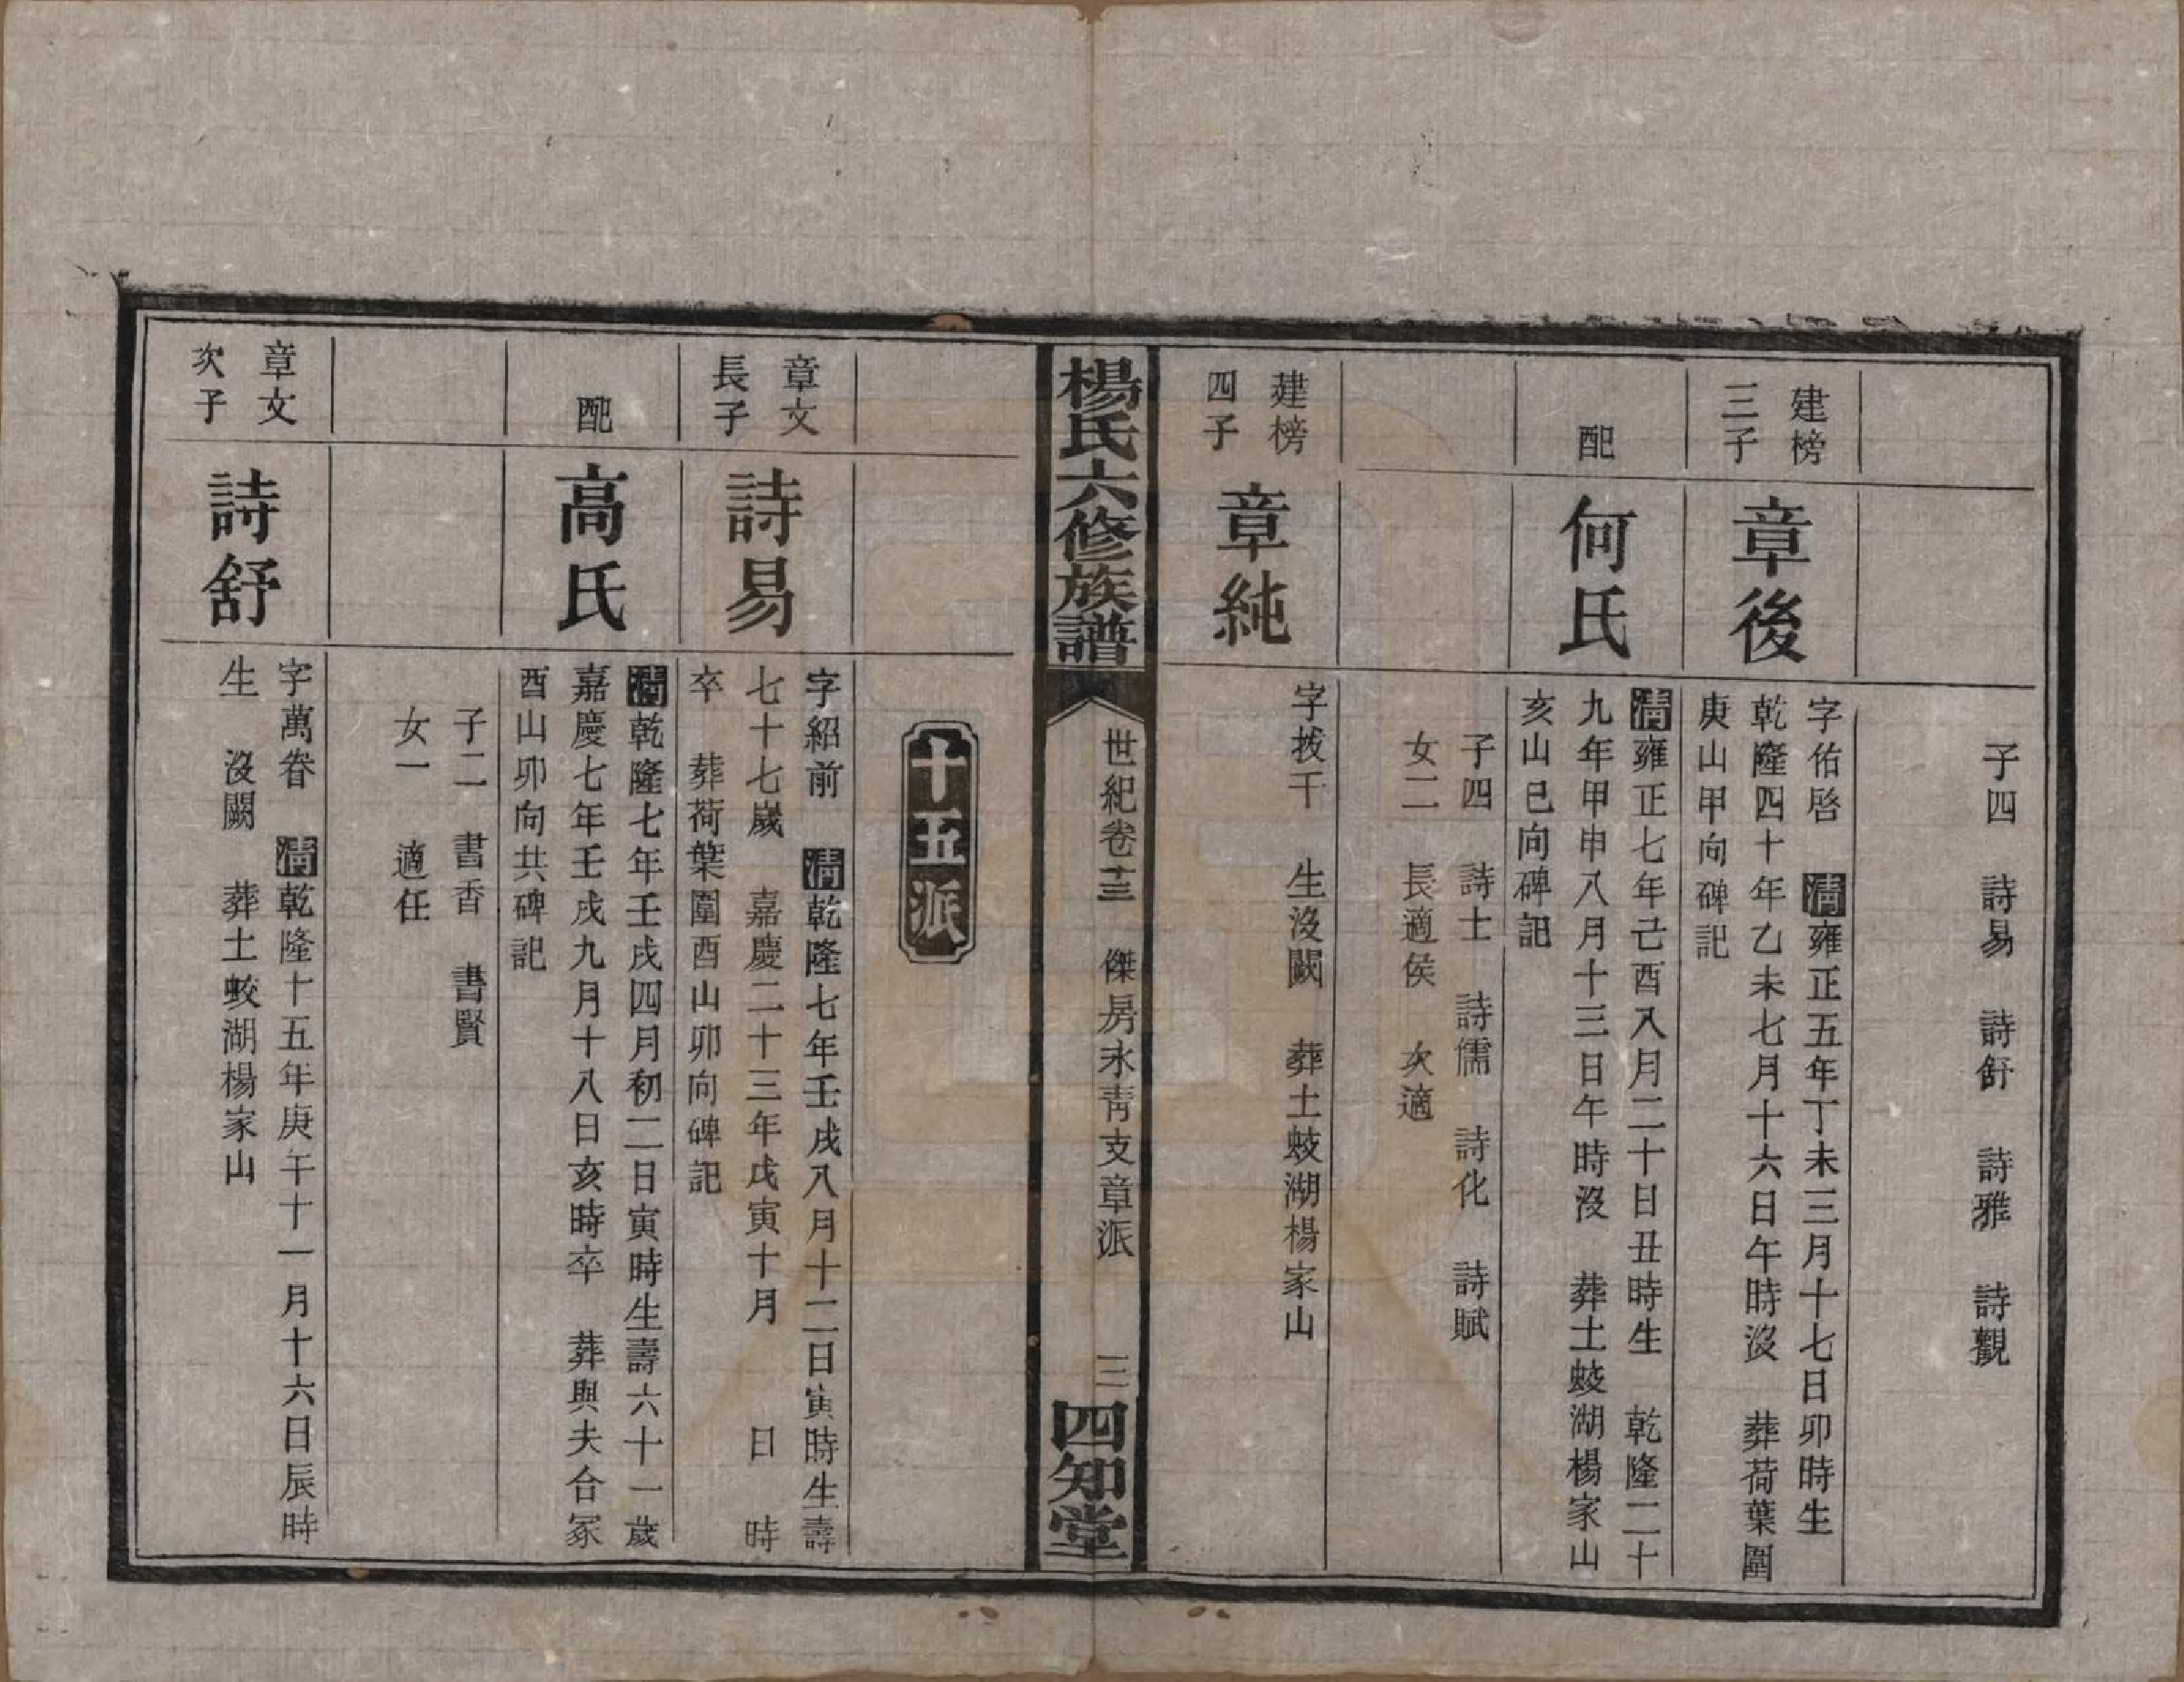 子四　詩易　詩舒　詩雅　詩觀
建榜
三子
章後
字佑啓　清雍正五年丁未三月十七日卯時生
乾隆四十年乙未七月十六日午時沒　葬荷葉圍
庚山甲向碑記
配
何氏
清雍正七年己酉入月二十日丑時生　乾隆二十
九年甲申八月十三日午時沒　葬土蛟湖楊家山
亥山巳向碑記
子四　詩士　詩儒　詩化　詩賦
女二　長適侯　次適
建榜
四子
章純
字拔千　生沒闕　葬土蛟湖楊家山
楊氏六修族譜
世紀卷十三　傑房永青支章派　三
四知堂
十五派
章文
長子
詩易
字紹前　清乾隆七年壬戌八月十二日寅時生壽
七十七歲　嘉慶二十三年戊寅十月　日　時
卒　葬荷葉圍酉山卯向碑記
配
高氏
清乾隆七年壬戌四月初二日寅時生壽六十一歲
嘉慶七年壬戌九月十八日亥時卒　葬與夫合冢
酉山卯向共碑記
子二　書香　書賢
女一　適任
章文
次子
詩舒
字萬眷　清乾隆十五年庚午十一月十六日辰時
生　沒闕　葬土蛟湖楊家山